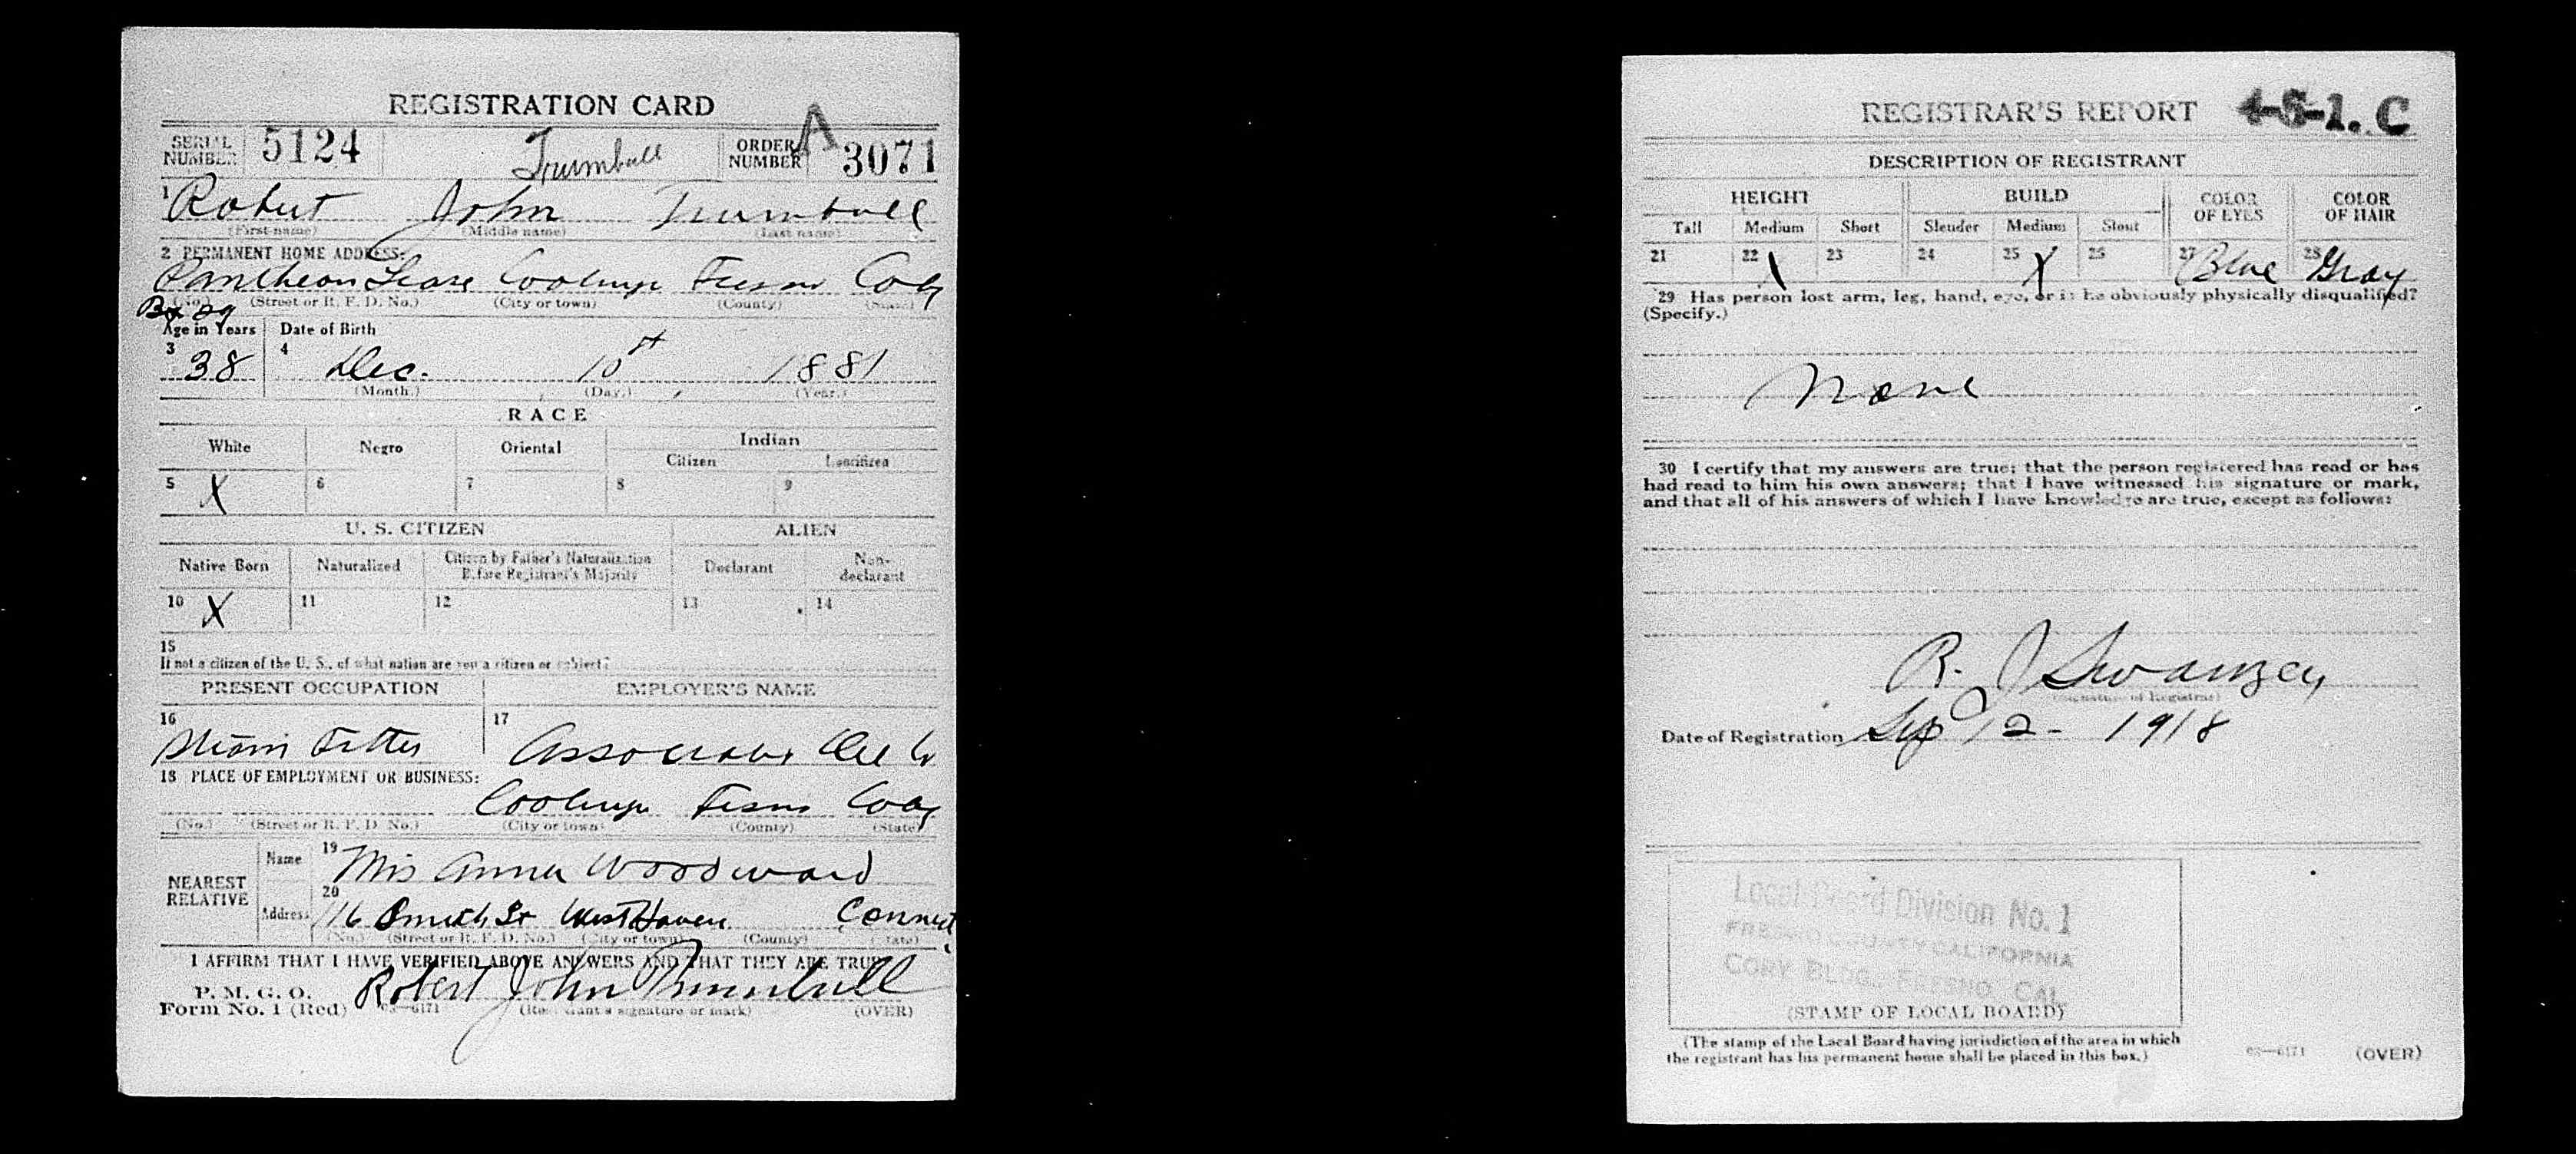 REGISTRATION CARD
SERIAL NUMBER 5124 Trumbull ORDER NUMBER A 3071
1 Robert John Trumbull
(First name) (Middle name) (Last name)
2 PERMANENT HOME ADDRESS:
Pantheon Lease Coalinga Fresno Calif
(No.) (Street or R. F. D. No.) (City or town) (County) (State)
Bx 29
Age in Years Date of Birth
3 38 4 Dec. 10th 1881
(Month.) (Day.) (Year.)
RACE
White Negro Oriental Indian
Citizen Noncitizen
5 X 6 7 8 9
U. S. CITIZEN ALIEN
Native Born Naturalized Citizen by Father's Naturalization Before Registrant's Majority Declarant Non-declarant
10 X 11 12 13 14
15
If not a citizen of the U. S., of what nation are you a citizen or subject?
PRESENT OCCUPATION EMPLOYER'S NAME
16 17
Fitter Associated Oil Co
18 PLACE OF EMPLOYMENT OR BUSINESS:
Coalinga Fresno Calif
(No.) (Street or R. F. D. No.) (City or town) (County) (State)
NEAREST RELATIVE
Name 19 Mrs Anna Woodward
Address 20 116 Smith St West Haven Connect
(No.) (Street or R. F. D. No.) (City or town) (County) (State)
I AFFIRM THAT I HAVE VERIFIED ABOVE ANSWERS AND THAT THEY ARE TRUE
P. M. G. O.
Form No. 1 (Red) 03—6171 Robert John Trumbull
(Registrant's signature or mark) (OVER)
REGISTRAR'S REPORT 4-5-1. C
DESCRIPTION OF REGISTRANT
HEIGHT BUILD COLOR OF EYES COLOR OF HAIR
Tall Medium Short Slender Medium Stout
21 22 \ 23 24 25 X 26 27 Blue 28 Gray
29 Has person lost arm, leg, hand, eye, or is he obviously physically disqualified?
(Specify.)
None
30 I certify that my answers are true; that the person registered has read or has
had read to him his own answers; that I have witnessed his signature or mark,
and that all of his answers of which I have knowledge are true, except as follows:
R. J Swanzey
(Signature of Registrar)
Date of Registration Sep 12 - 1918
Local Board Division No. 1
FRESNO COUNTY CALIFORNIA
CORY BLDG., FRESNO, CAL.
(STAMP OF LOCAL BOARD)
(The stamp of the Local Board having jurisdiction of the area in which
the registrant has his permanent home shall be placed in this box.)
03—6171 (OVER)